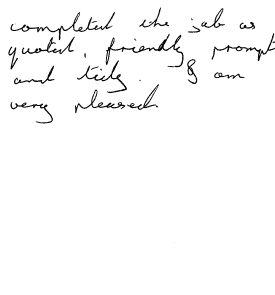 completed the job as
quoted, friendly prompt
and tidy. I am
very pleased.